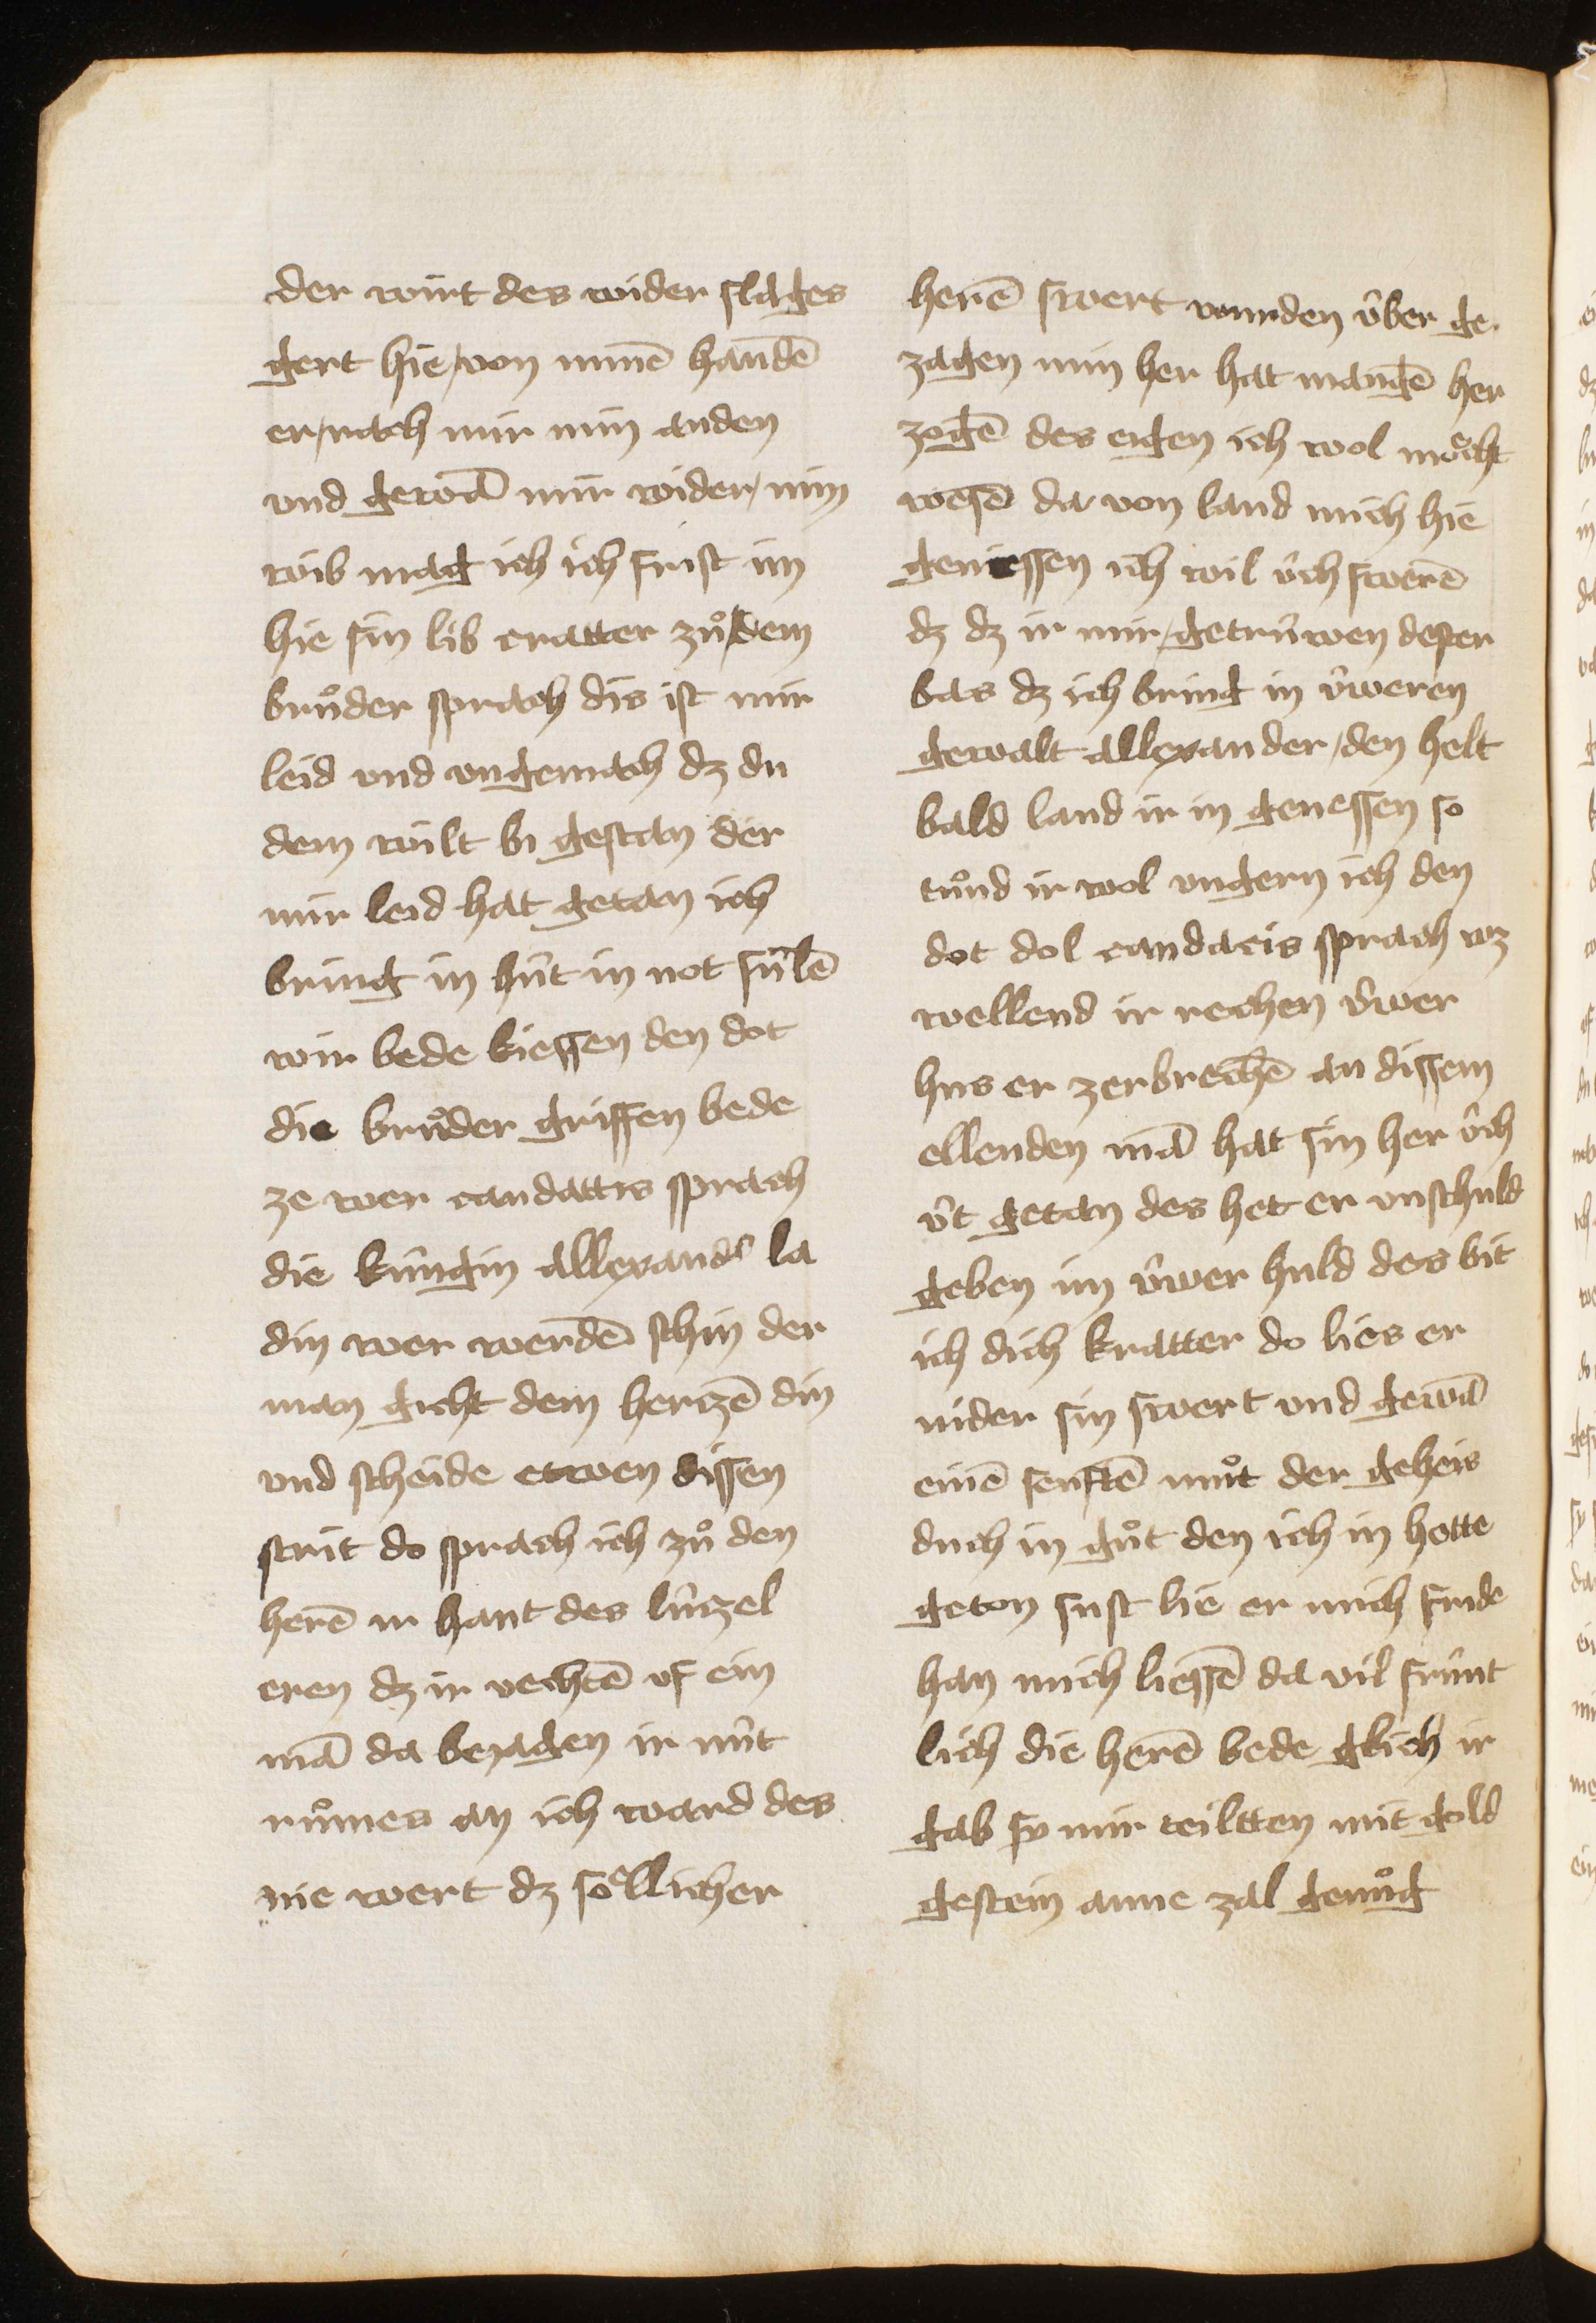 der wirt des wider slages
gert hie / von minē handē
er / rach mir min anden
vnd gewā mir wider / min
wib mag ich ich frist im
hie sin lib cratter zuͦ dem
bruͦder sprach dis ist mir
leid vnd vngemach dz du
dem wilt bi gestan der
mir leid hat getan ich
bring in huͤt in not suͤlē
wir bede kiessen den dot
die bruͦder griffen bede
ze wer candattis sprach
die kuͤngin allexandˢ la
din wer werdē schin der
man gicht dem herczē din
vnd scheide etwen dissen
strit do sprach ich zuͦ den
herē ir hant des luͤczel
eren dz ir vechtē vf ein
mā da beiagen ir nuͤt
ruͦmes an ich ward des
nie wert dz soͤllicher
herē swert wurden uͤber ge
zagen min her hat mangē her
zogē des eigen ich wol moͤcht
wesē da von land mich hie
geniessen ich wil uͤch swerē
dz dz ir mir / getruͤwen dester
bas dz ich bring in uͤweren
gewalt allexander / den helt
bald land ir in genessen so
tuͦnd ir wol vngern ich den
dot dol candacis sprach wz
wellend ir rechen uͤwer
hus er zerbrechē an dissem
ellenden mā hat sin her uͤch
uͤt getan des het er vnschuld
geben im uͤwer huld des bit
ich dich kratter do lies er
nider sin swert vnd gewā
einē senftē muͦt der geheis
duch in guͦt den ich in hette
geton sust lie er mich fride
han mich liessē da vil fruͤnt
lich die herē bede glich ir
gab sy mir teiltten mit gold
gestein anne zal genuͦg